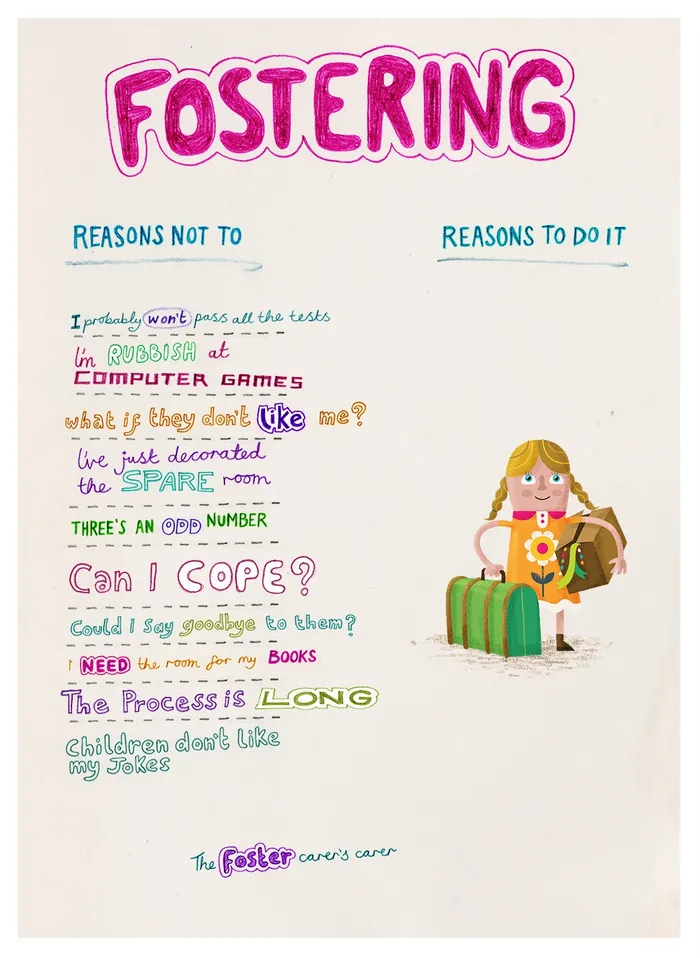 FOSTERING
REASONS NOT TO
REASONS TO DO IT
I probably won't pass all the tests
I'm RUBBISH at
COMPUTER GAMES
what if they don't like me?
I've just decorated
the SPARE room
THREE'S AN ODD NUMBER
Can I COPE?
Could I say goodbye to them?
I NEED the room for my BOOKS
The Process is LONG
Children don't like
my Jokes
The Foster carer's carer